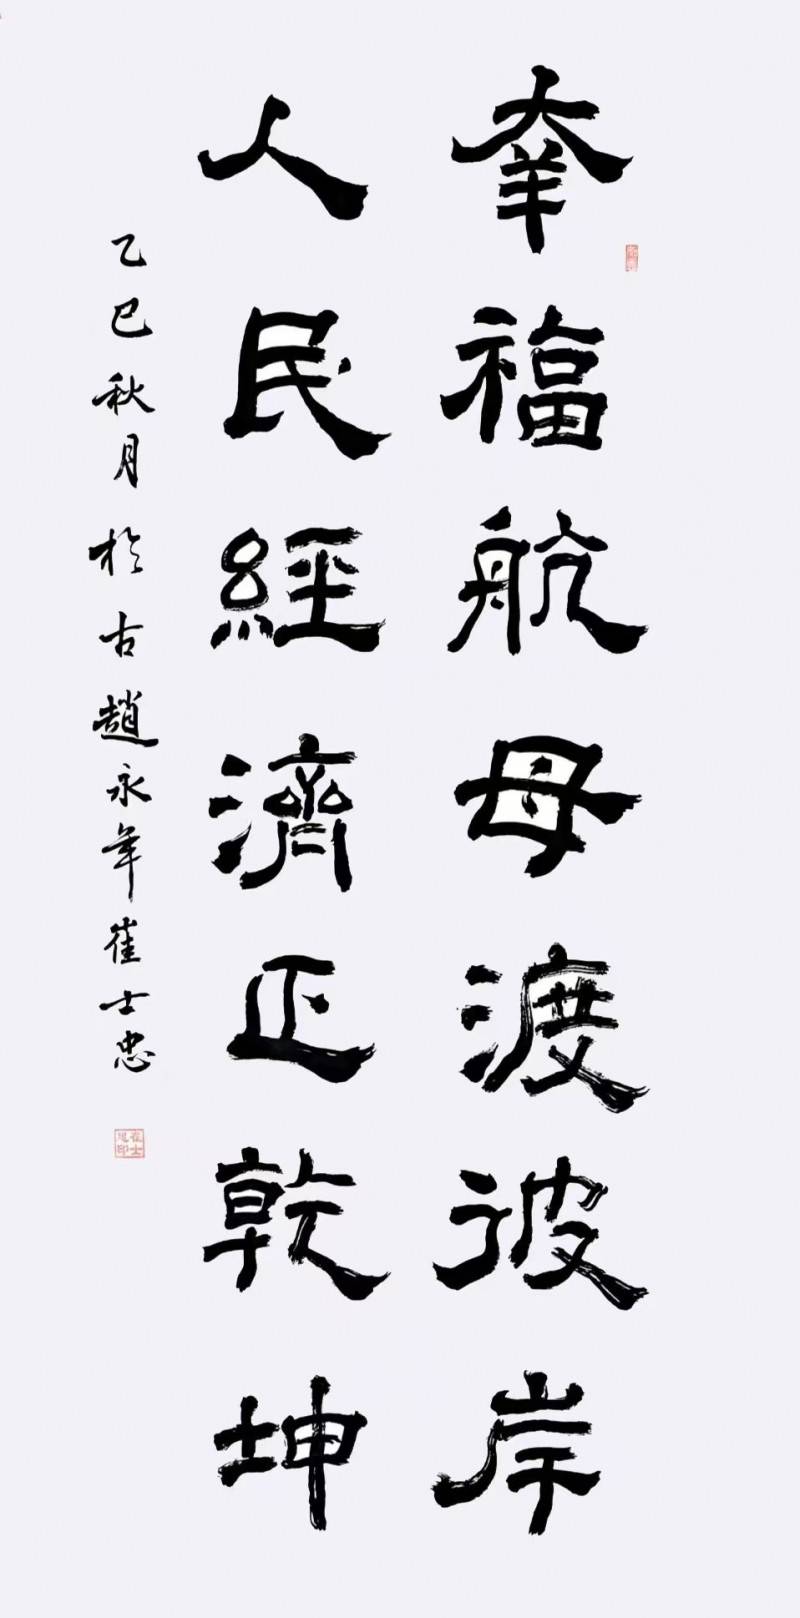 幸福航母渡彼岸
人民經濟正乾坤
乙巳秋月於古趙永年崔士忠
崔士忠印